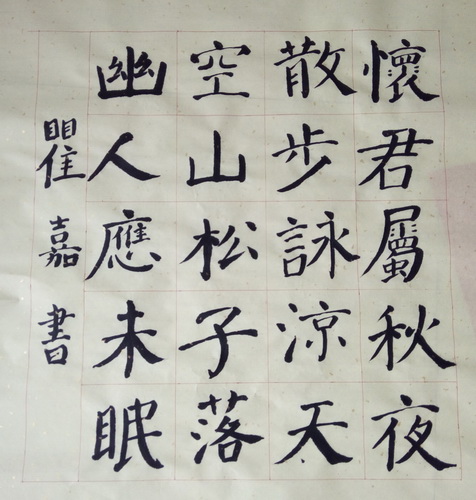 懷君屬秋夜
散步詠涼天
空山松子落
幽人應未眠
瞿嘉書